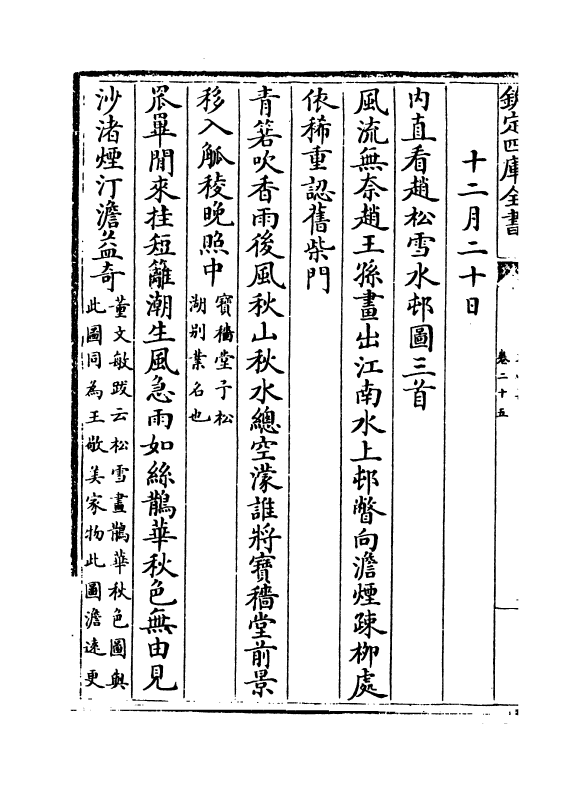 欽定四庫全書
卷二十五
十二月二十日
内直看趙松雪水邨圖三首
風流無奈趙王孫畫出江南水上邨瞥向澹煙疎栁處
依稀重認舊柴門
青篛吹香雨後風秋山秋水總空濛誰將寶穡堂前景
移入觚稜晚照中寳穡堂予松
湖别業名也
罛罩閒來挂短籬潮生風急雨如絲鵲華秋色無由見
沙渚煙汀澹益奇董文敏跋云松雪畫鵲華秋色圖與
此圖同為王敬美家物此圖澹逺更